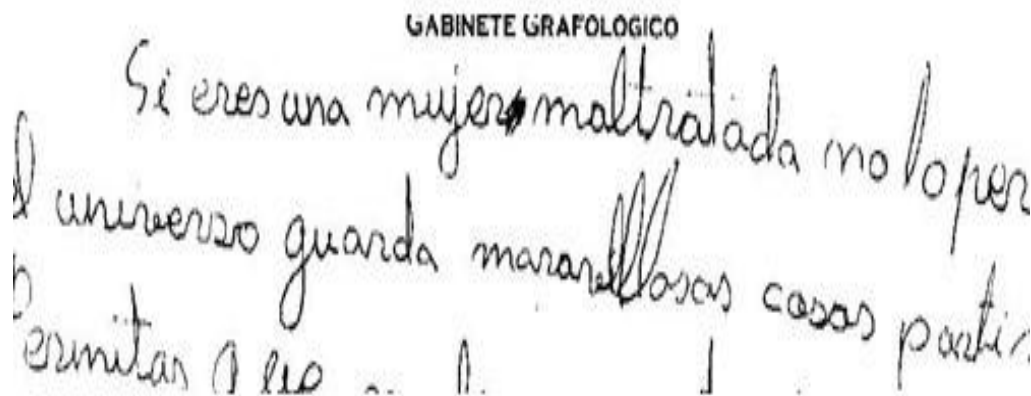 GABINETE GRAFOLOGICO
Si eres una mujer maltratada no lo per
l universo guarda maravillosas cosas par ti
Permitas que